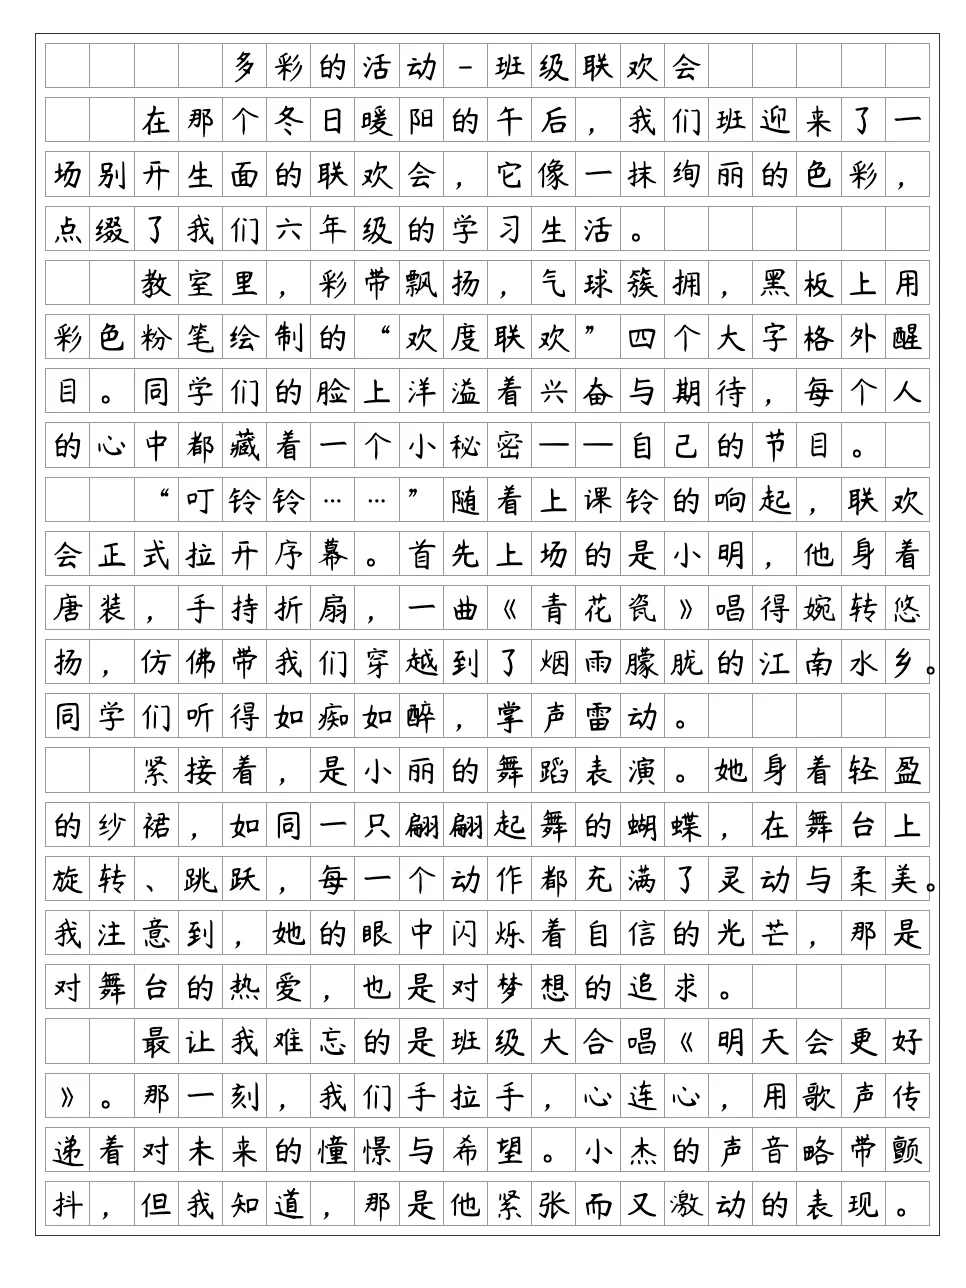 多彩的活动-班级联欢会
在那个冬日暖阳的午后，我们班迎来了一
场别开生面的联欢会，它像一抹绚丽的色彩，
点缀了我们六年级的学习生活。
教室里，彩带飘扬，气球簇拥，黑板上用
彩色粉笔绘制的“欢度联欢”四个大字格外醒
目。同学们的脸上洋溢着兴奋与期待，每个人
的心中都藏着一个小秘密——自己的节目。
“叮铃铃……”随着上课铃的响起，联欢
会正式拉开序幕。首先上场的是小明，他身着
唐装，手持折扇，一曲《青花瓷》唱得婉转悠
扬，仿佛带我们穿越到了烟雨朦胧的江南水乡。
同学们听得如痴如醉，掌声雷动。
紧接着，是小丽的舞蹈表演。她身着轻盈
的纱裙，如同一只翩翩起舞的蝴蝶，在舞台上
旋转、跳跃，每一个动作都充满了灵动与柔美。
我注意到，她的眼中闪烁着自信的光芒，那是
对舞台的热爱，也是对梦想的追求。
最让我难忘的是班级大合唱《明天会更好
》。那一刻，我们手拉手，心连心，用歌声传
递着对未来的憧憬与希望。小杰的声音略带颤
抖，但我知道，那是他紧张而又激动的表现。